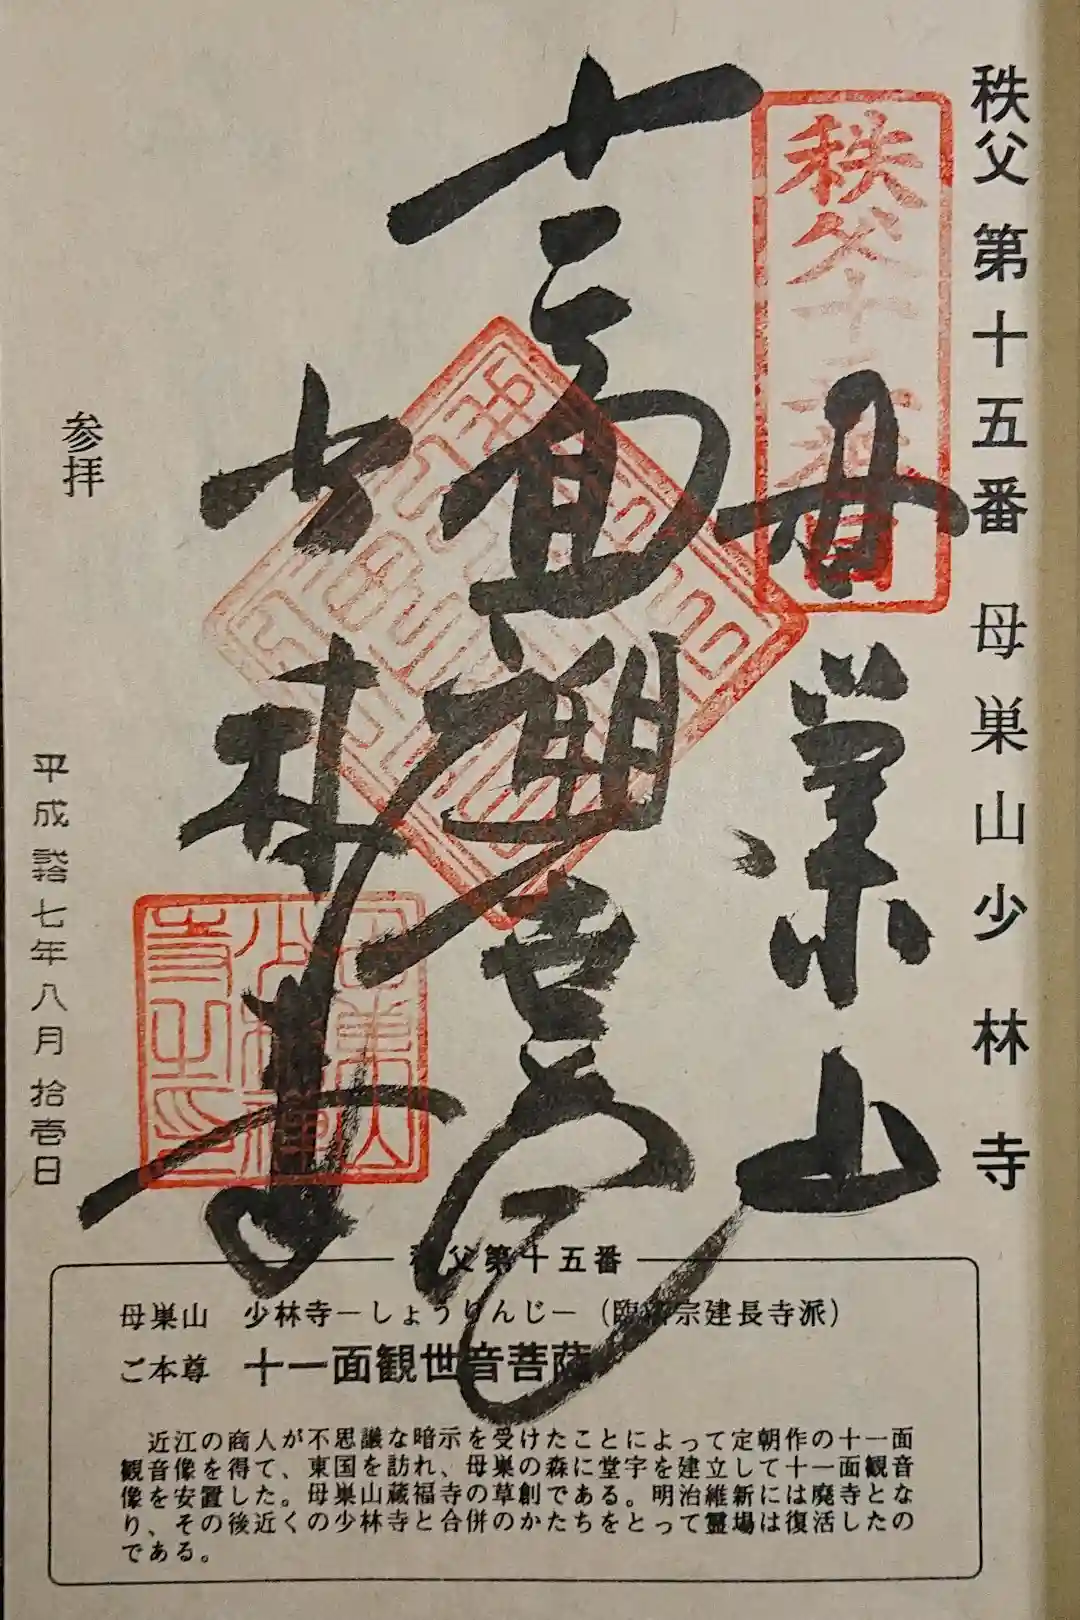 秩父第十五番 母巣山少林寺
秩父十五番
母巣山
十一面観音
少林寺
参拝
平成拾七年八月拾壱日
秩父第十五番
母巣山 少林寺―しょうりんじ―(臨済宗建長寺派)
ご本尊 十一面観世音菩薩
近江の商人が不思議な暗示を受けたことによって定朝作の十一面
観音像を得て、東国を訪れ、母巣の森に堂宇を建立して十一面観音
像を安置した。母巣山蔵福寺の草創である。明治維新には廃寺とな
り、その後近くの少林寺と合併のかたちをとって霊場は復活したの
である。